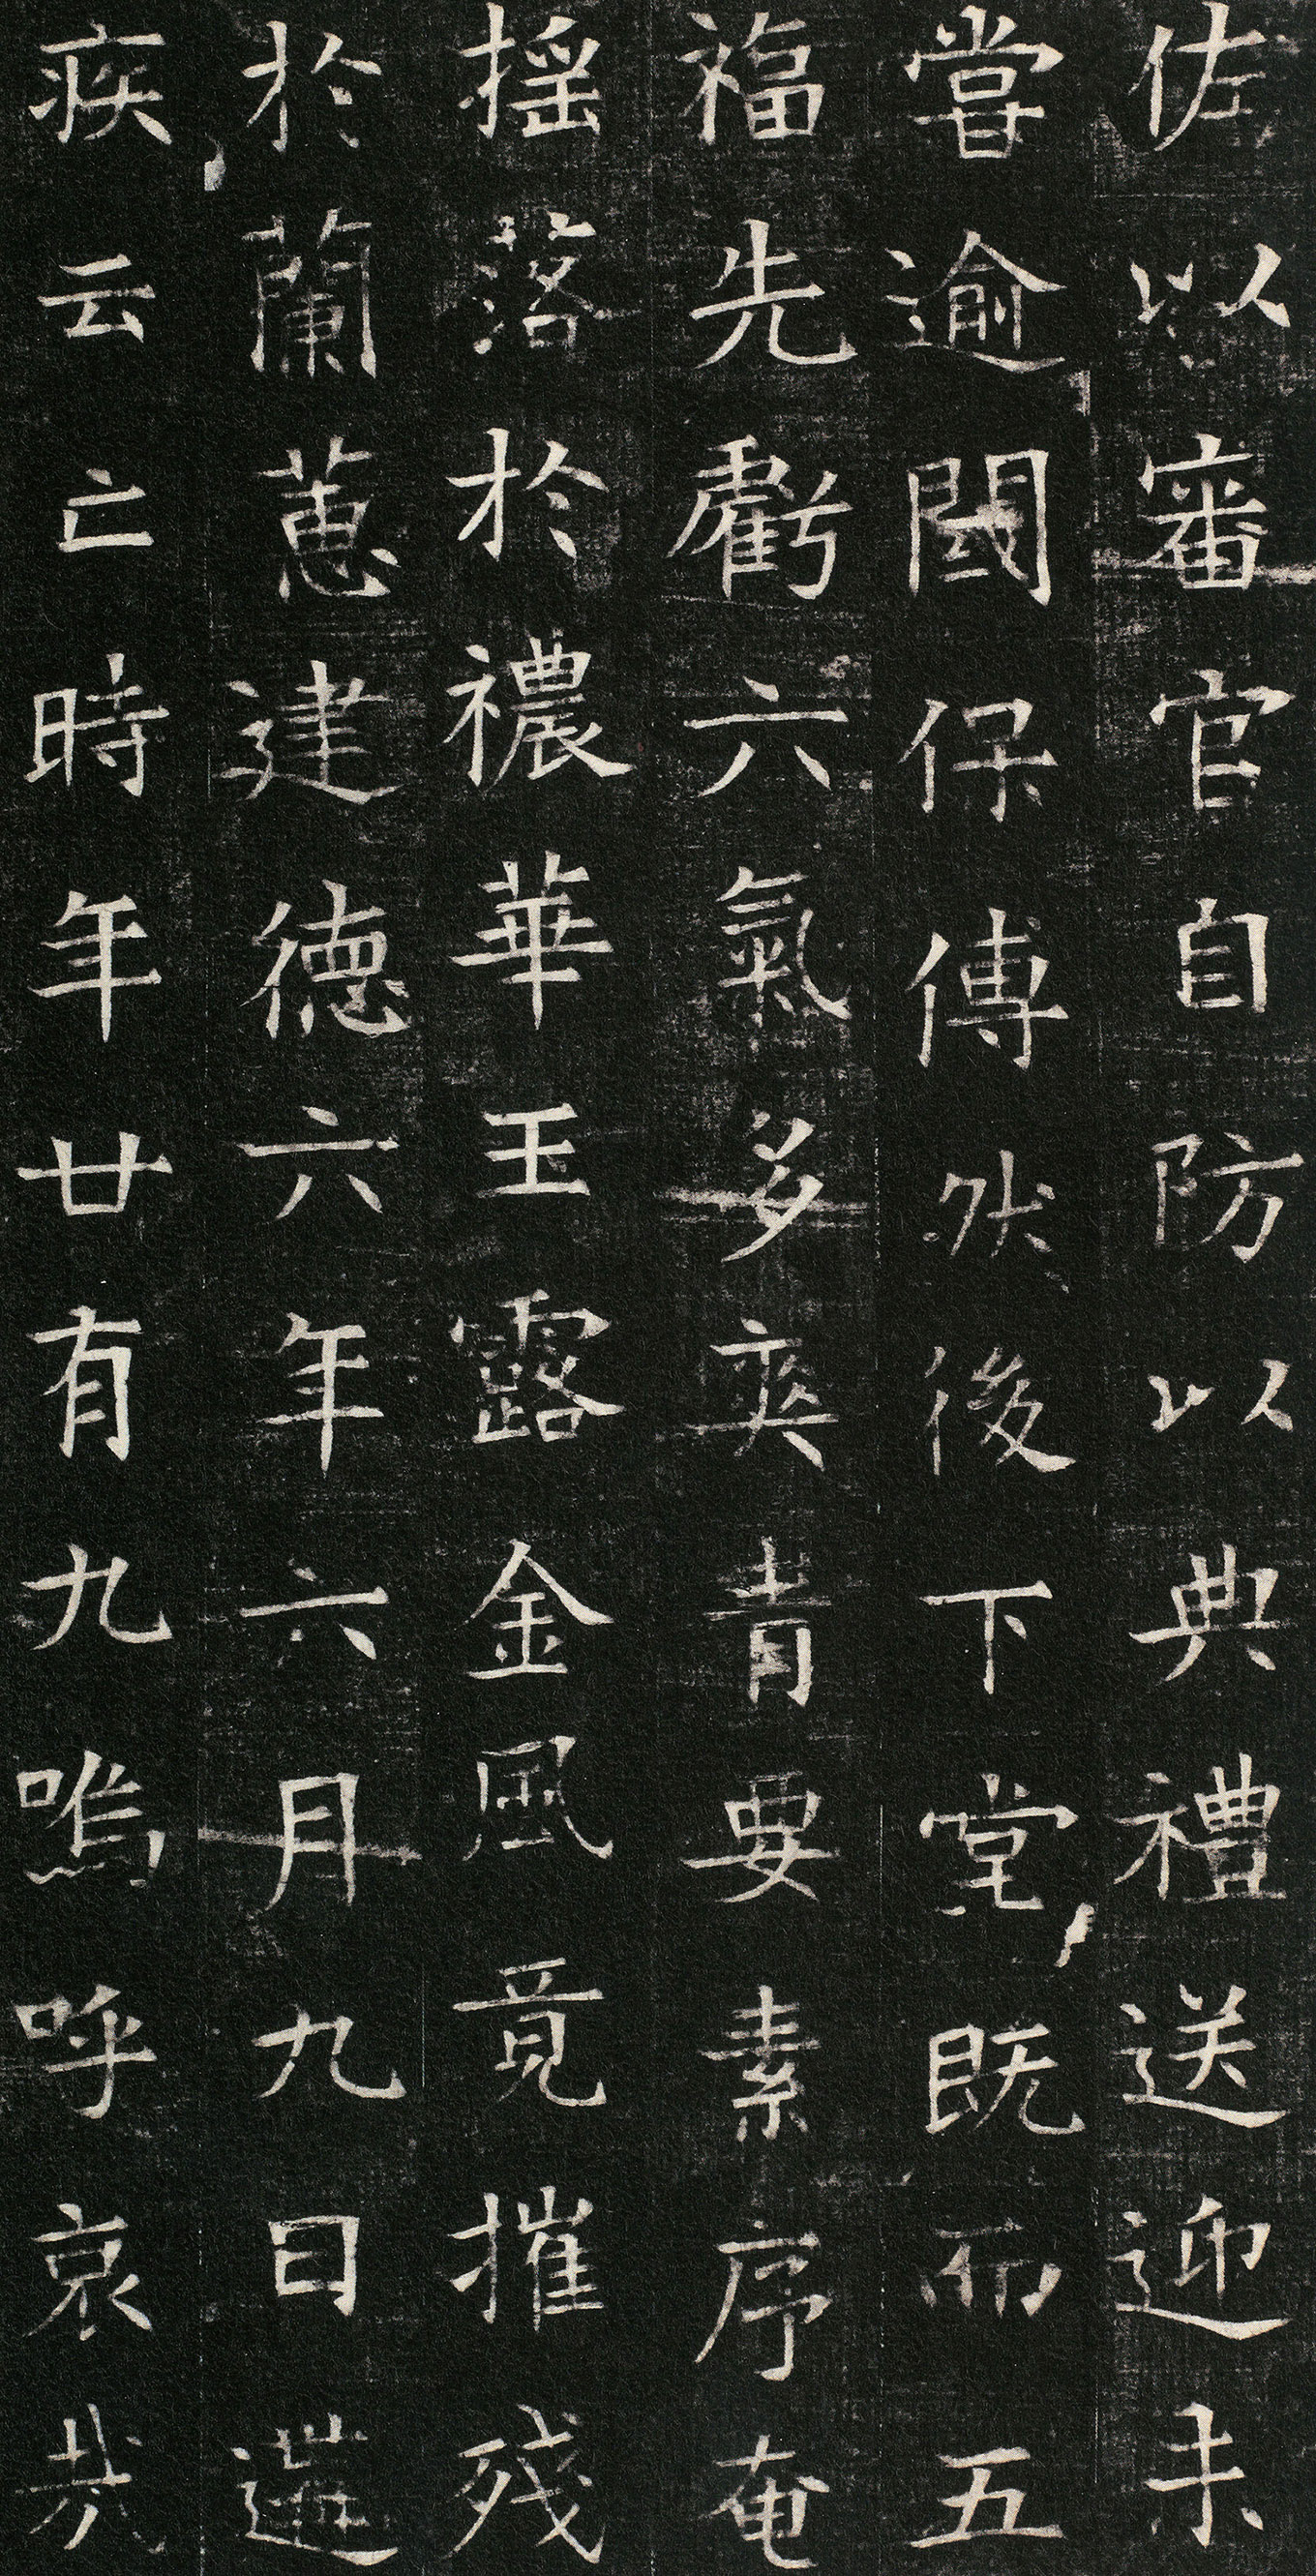 佐以審官自防以典禮送迎未
嘗逾閾保傅然後下堂既而五
福先虧六氣多爽青要素序奄
搖落於穠華玉露金風竟摧殘
於蘭蕙建德六年六月九日遘
疾云亡時年廿有九嗚呼哀哉